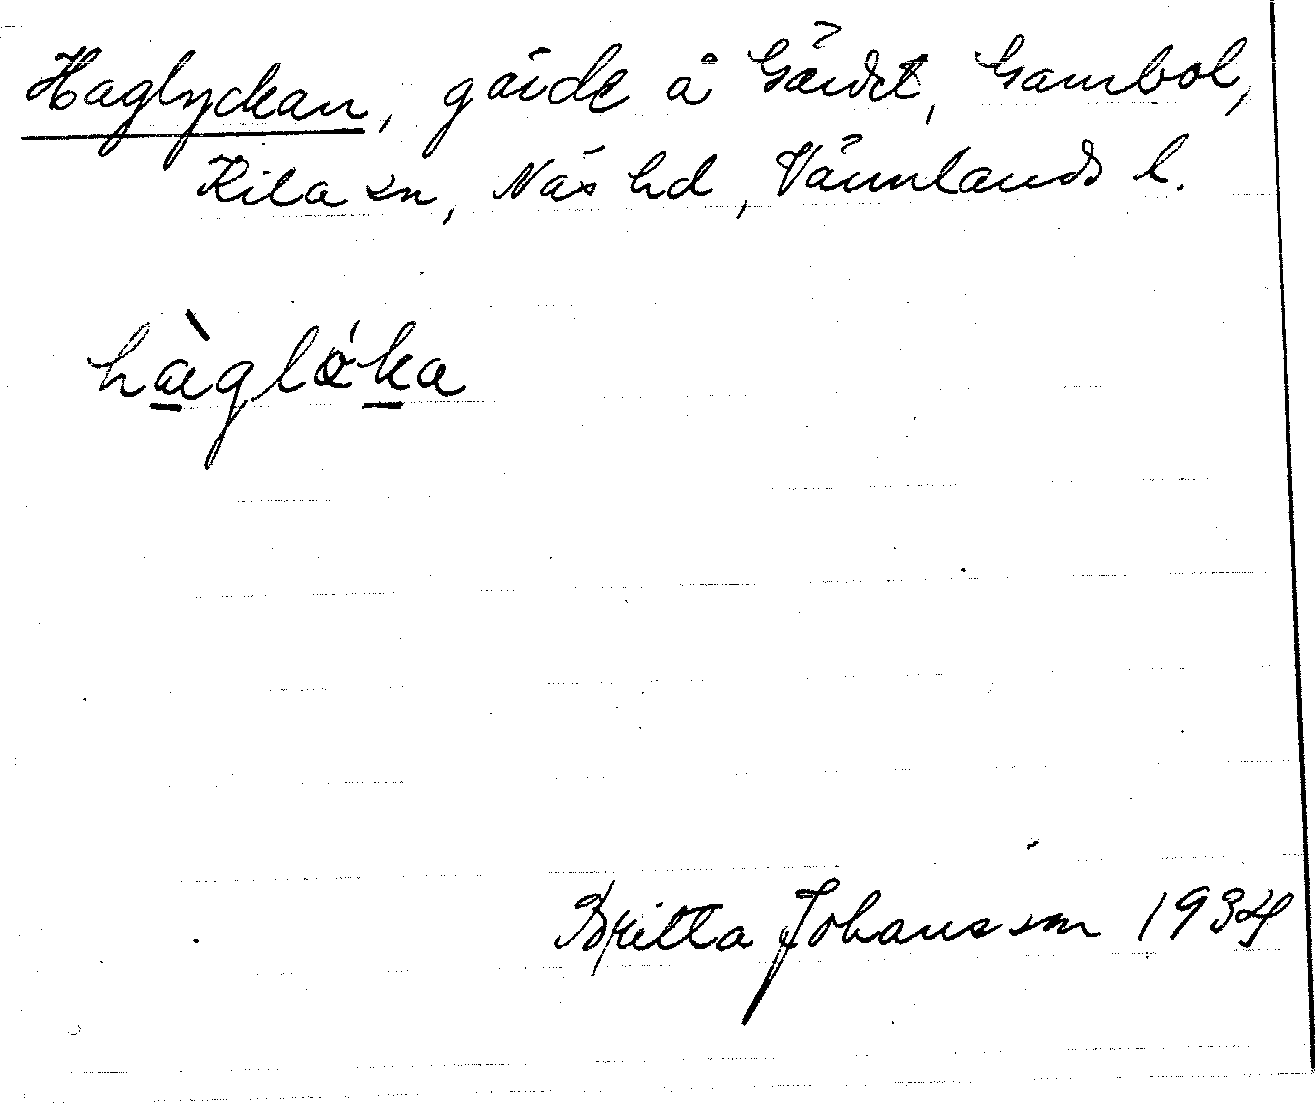 Haglyckan, gärde å Gärdet, Gambol,
Kila sn, Näs hd, Värmlands l.
hàglǿka
Britta Johansson 1934